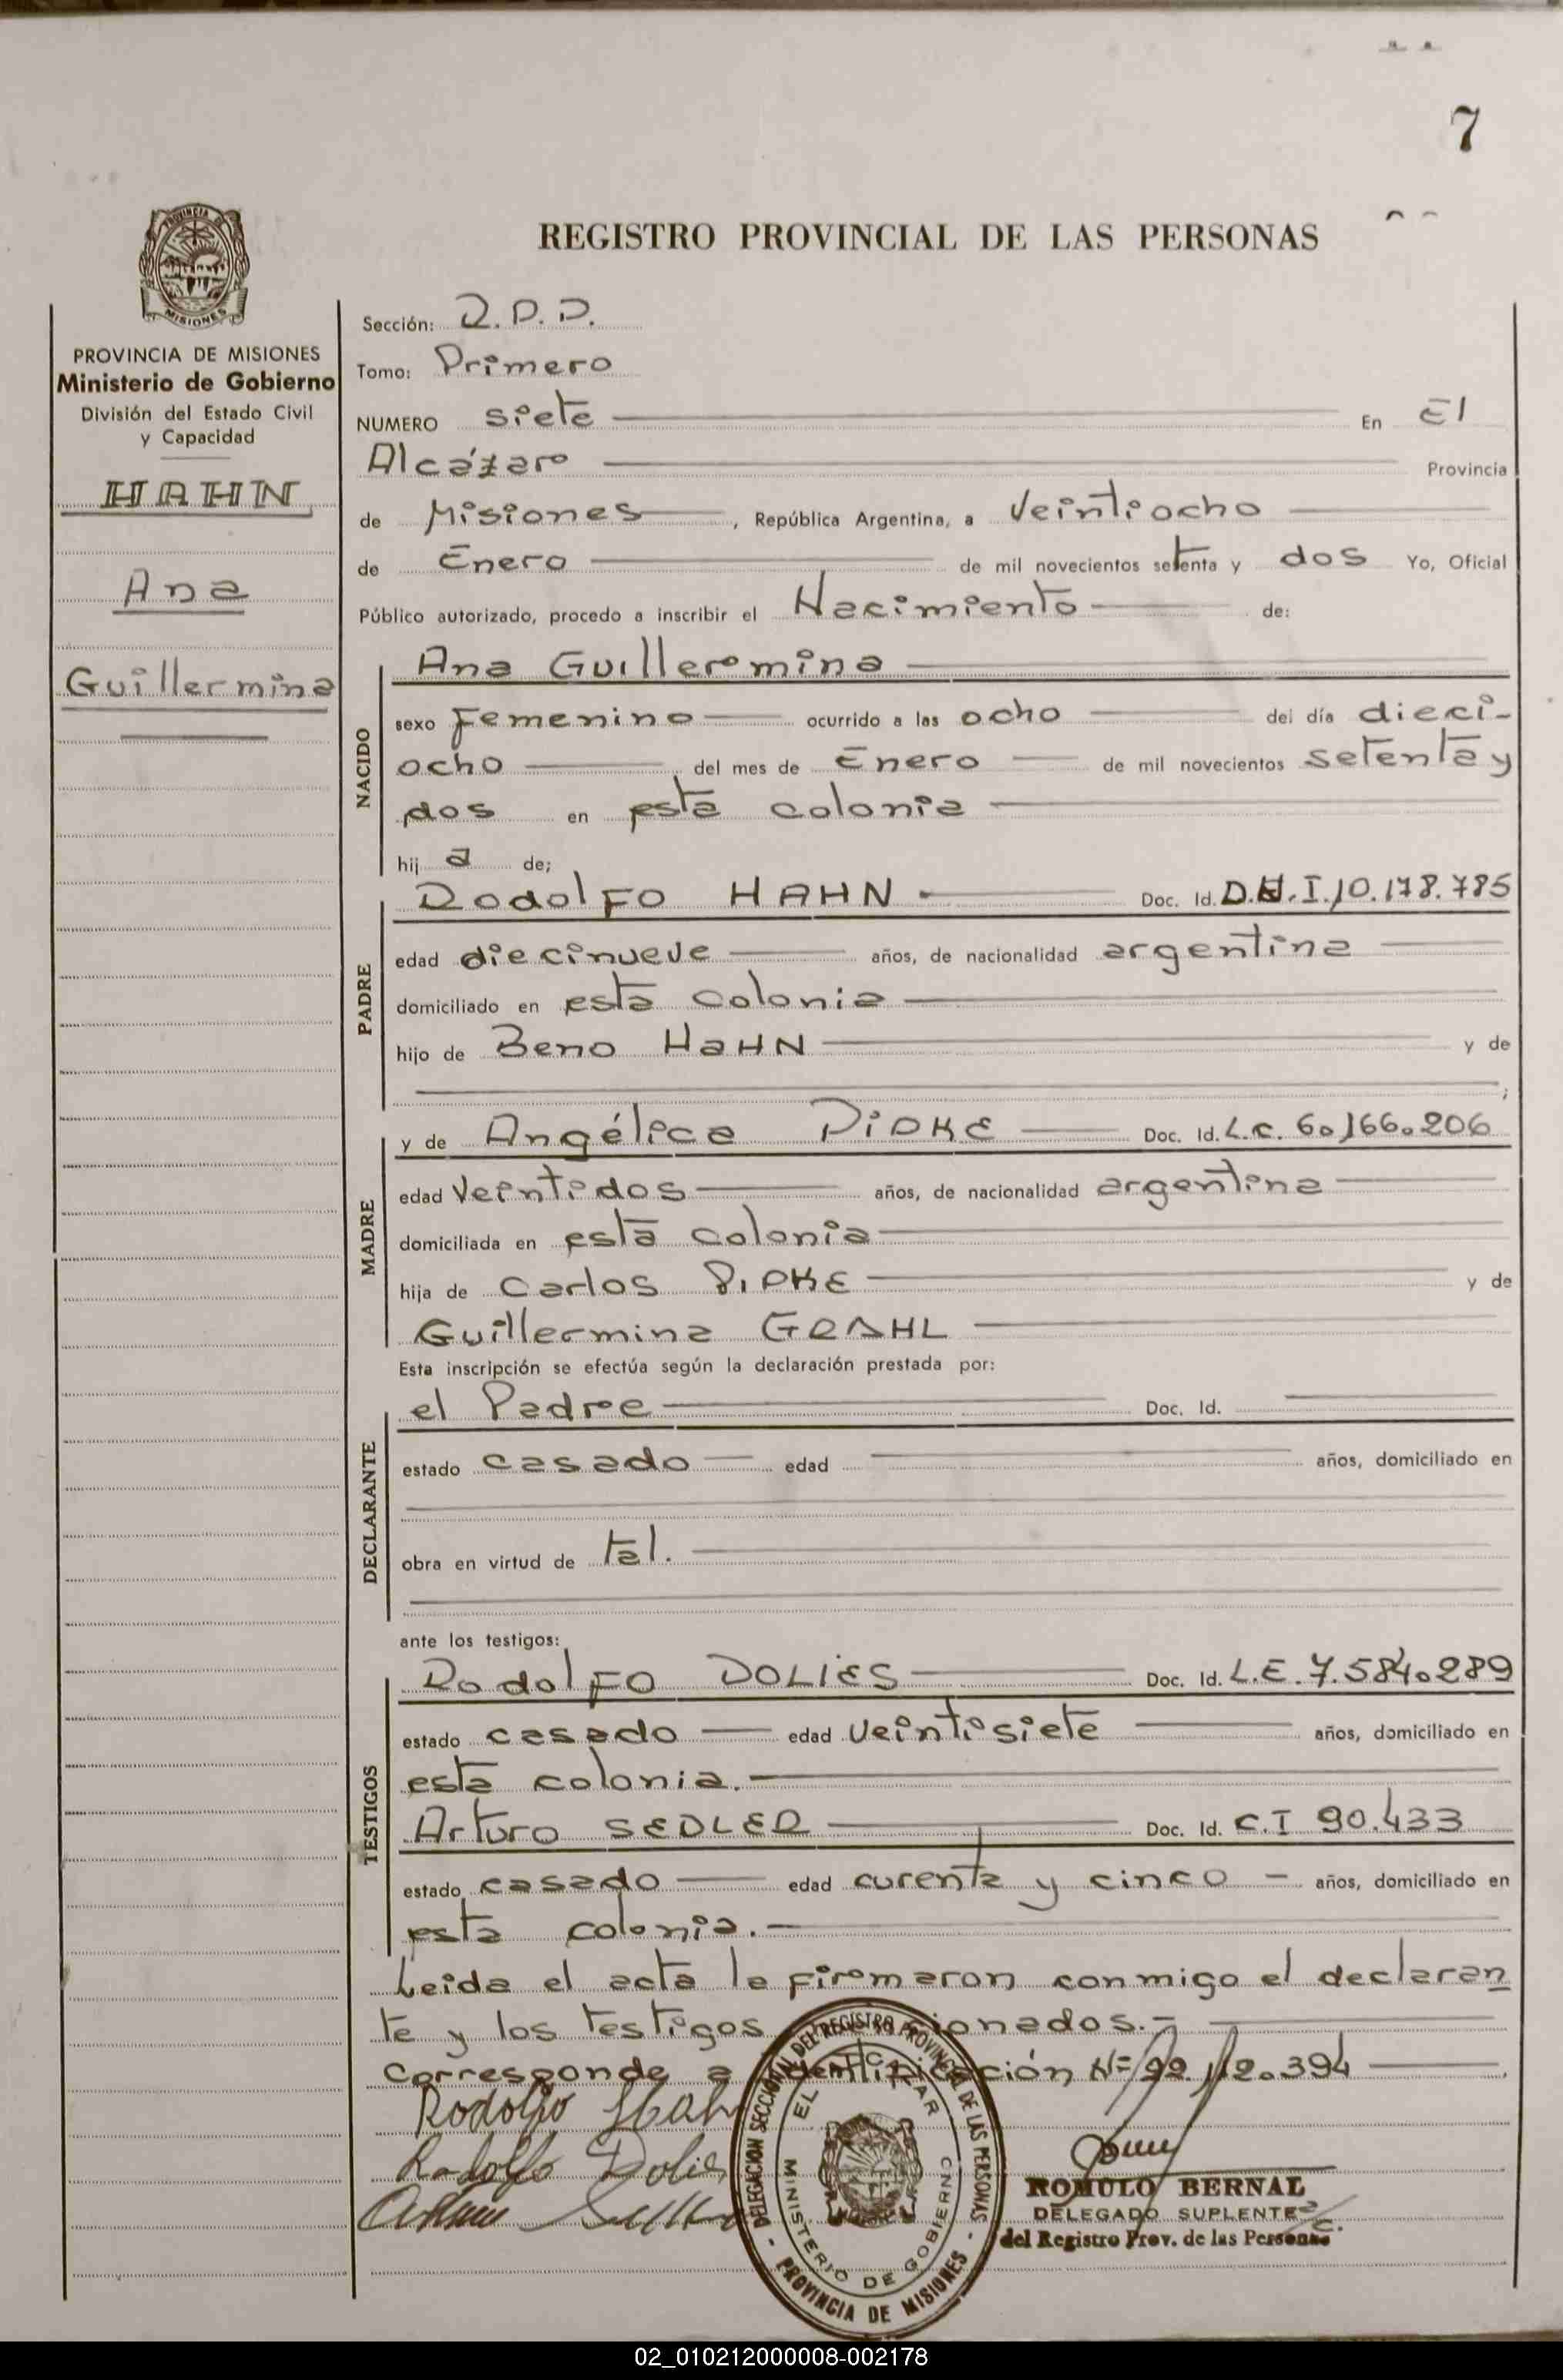 7
REGISTRO PROVINCIAL DE LAS PERSONAS
PROVINCIA DE MISIONES
Ministerio de Gobierno
División del Estado Civil
y Capacidad
HAHN
Ana
Guillermina
Sección: R.P.P.
Tomo: Primero
NUMERO siete En El
Alcázar Provincia
de Misiones, República Argentina, a Veintiocho
de Enero de mil novecientos setenta y dos Yo, Oficial
Público autorizado, procedo a inscribir el Nacimiento de:
NACIDO
Ana Guillermina
sexo Femenino ocurrido a las ocho del día dieci-
ocho del mes de Enero de mil novecientos setenta y
dos en esta colonia
hij a de;
PADRE
Rodolfo HAHN Doc. Id. D.N.I. 10.178.785
edad diecinueve años, de nacionalidad argentina
domiciliado en esta colonia
hijo de Beno HaHN y de
;
MADRE
y de Angélica PiDKE Doc. Id. L.C. 6.166.206
edad Veintidos años, de nacionalidad argentina
domiciliada en esta colonia
hija de Carlos PiDKE y de
Guillermina GRAHL
Esta inscripción se efectúa según la declaración prestada por:
DECLARANTE
el Padre Doc. Id.
estado casado edad años, domiciliado en
obra en virtud de tal.
ante los testigos:
TESTIGOS
Rodolfo DOLiES Doc. Id. L.E. 7.584.289
estado casado edad Veintisiete años, domiciliado en
esta colonia.
Arturo SEDLER Doc. Id. C.I 90.433
estado casado edad curenta y cinco - años, domiciliado en
esta colonia.
Leida el acta la firmaron conmigo el declaran
te y los testigos ionados.-
Corresponde a Identificación Nº 22.112.394
Rodolfo Hahn
Rodolfo Dolies
Arturo
DELEGACION SECCIONAL DEL REGISTRO PROVINCIAL DE LAS PERSONAS
EL ALCAZAR
MINISTERIO DE GOBIERNO
- PROVINCIA DE MISIONES -
ROMULO BERNAL
DELEGADO SUPLENTE
del Registro Prov. de las Personas
02_010212000008-002178